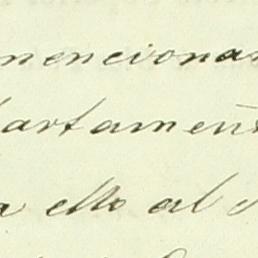 mencionar
partament
a ello al